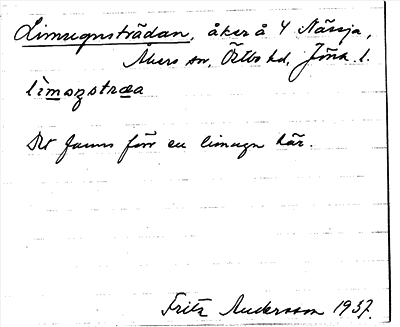 Limugnsträdan, åker å 4 Nässja,
Åkers sn, Östbo hd, Jönk. l.
lìmoŋstræa
Det fanns förr en limugn här.
Fritz Andersson 1937.